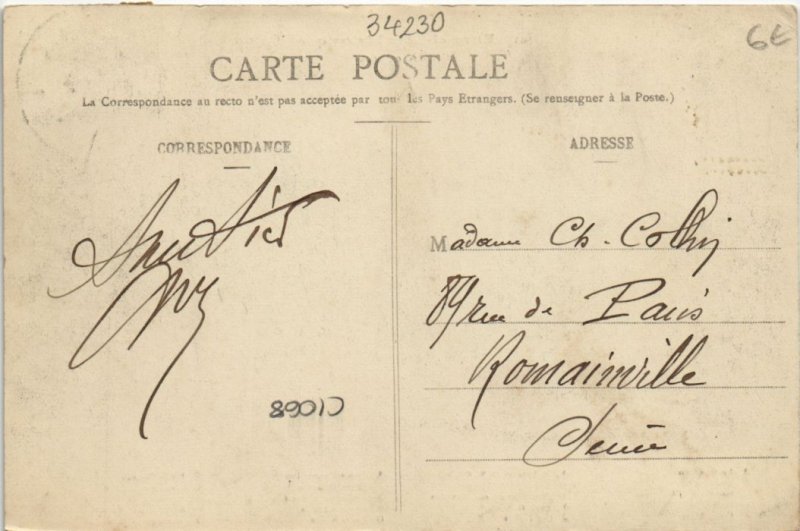 34230
6€
CARTE POSTALE
La Correspondance au recto n'est pas acceptée par tous les Pays Etrangers. (Se renseigner à la Poste.)
CORRESPONDANCE
ADRESSE
Madame Ch. 
89 rue de Paris
Romainville
Seine